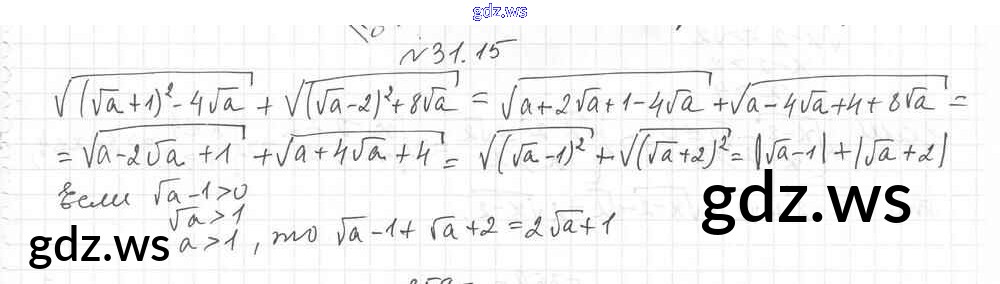 gdz.ws
№31.15
√((√a+1)²-4√a) + √((√a-2)²+8√a) = √(a+2√a+1-4√a) + √(a-4√a+4+8√a) =
= √(a-2√a+1) + √(a+4√a+4) = √((√a-1)²) + √((√a+2)²) = |√a-1|+|√a+2|
Если √a-1>0
√a>1
a>1, то √a-1+√a+2=2√a+1
gdz.ws
gdz.ws